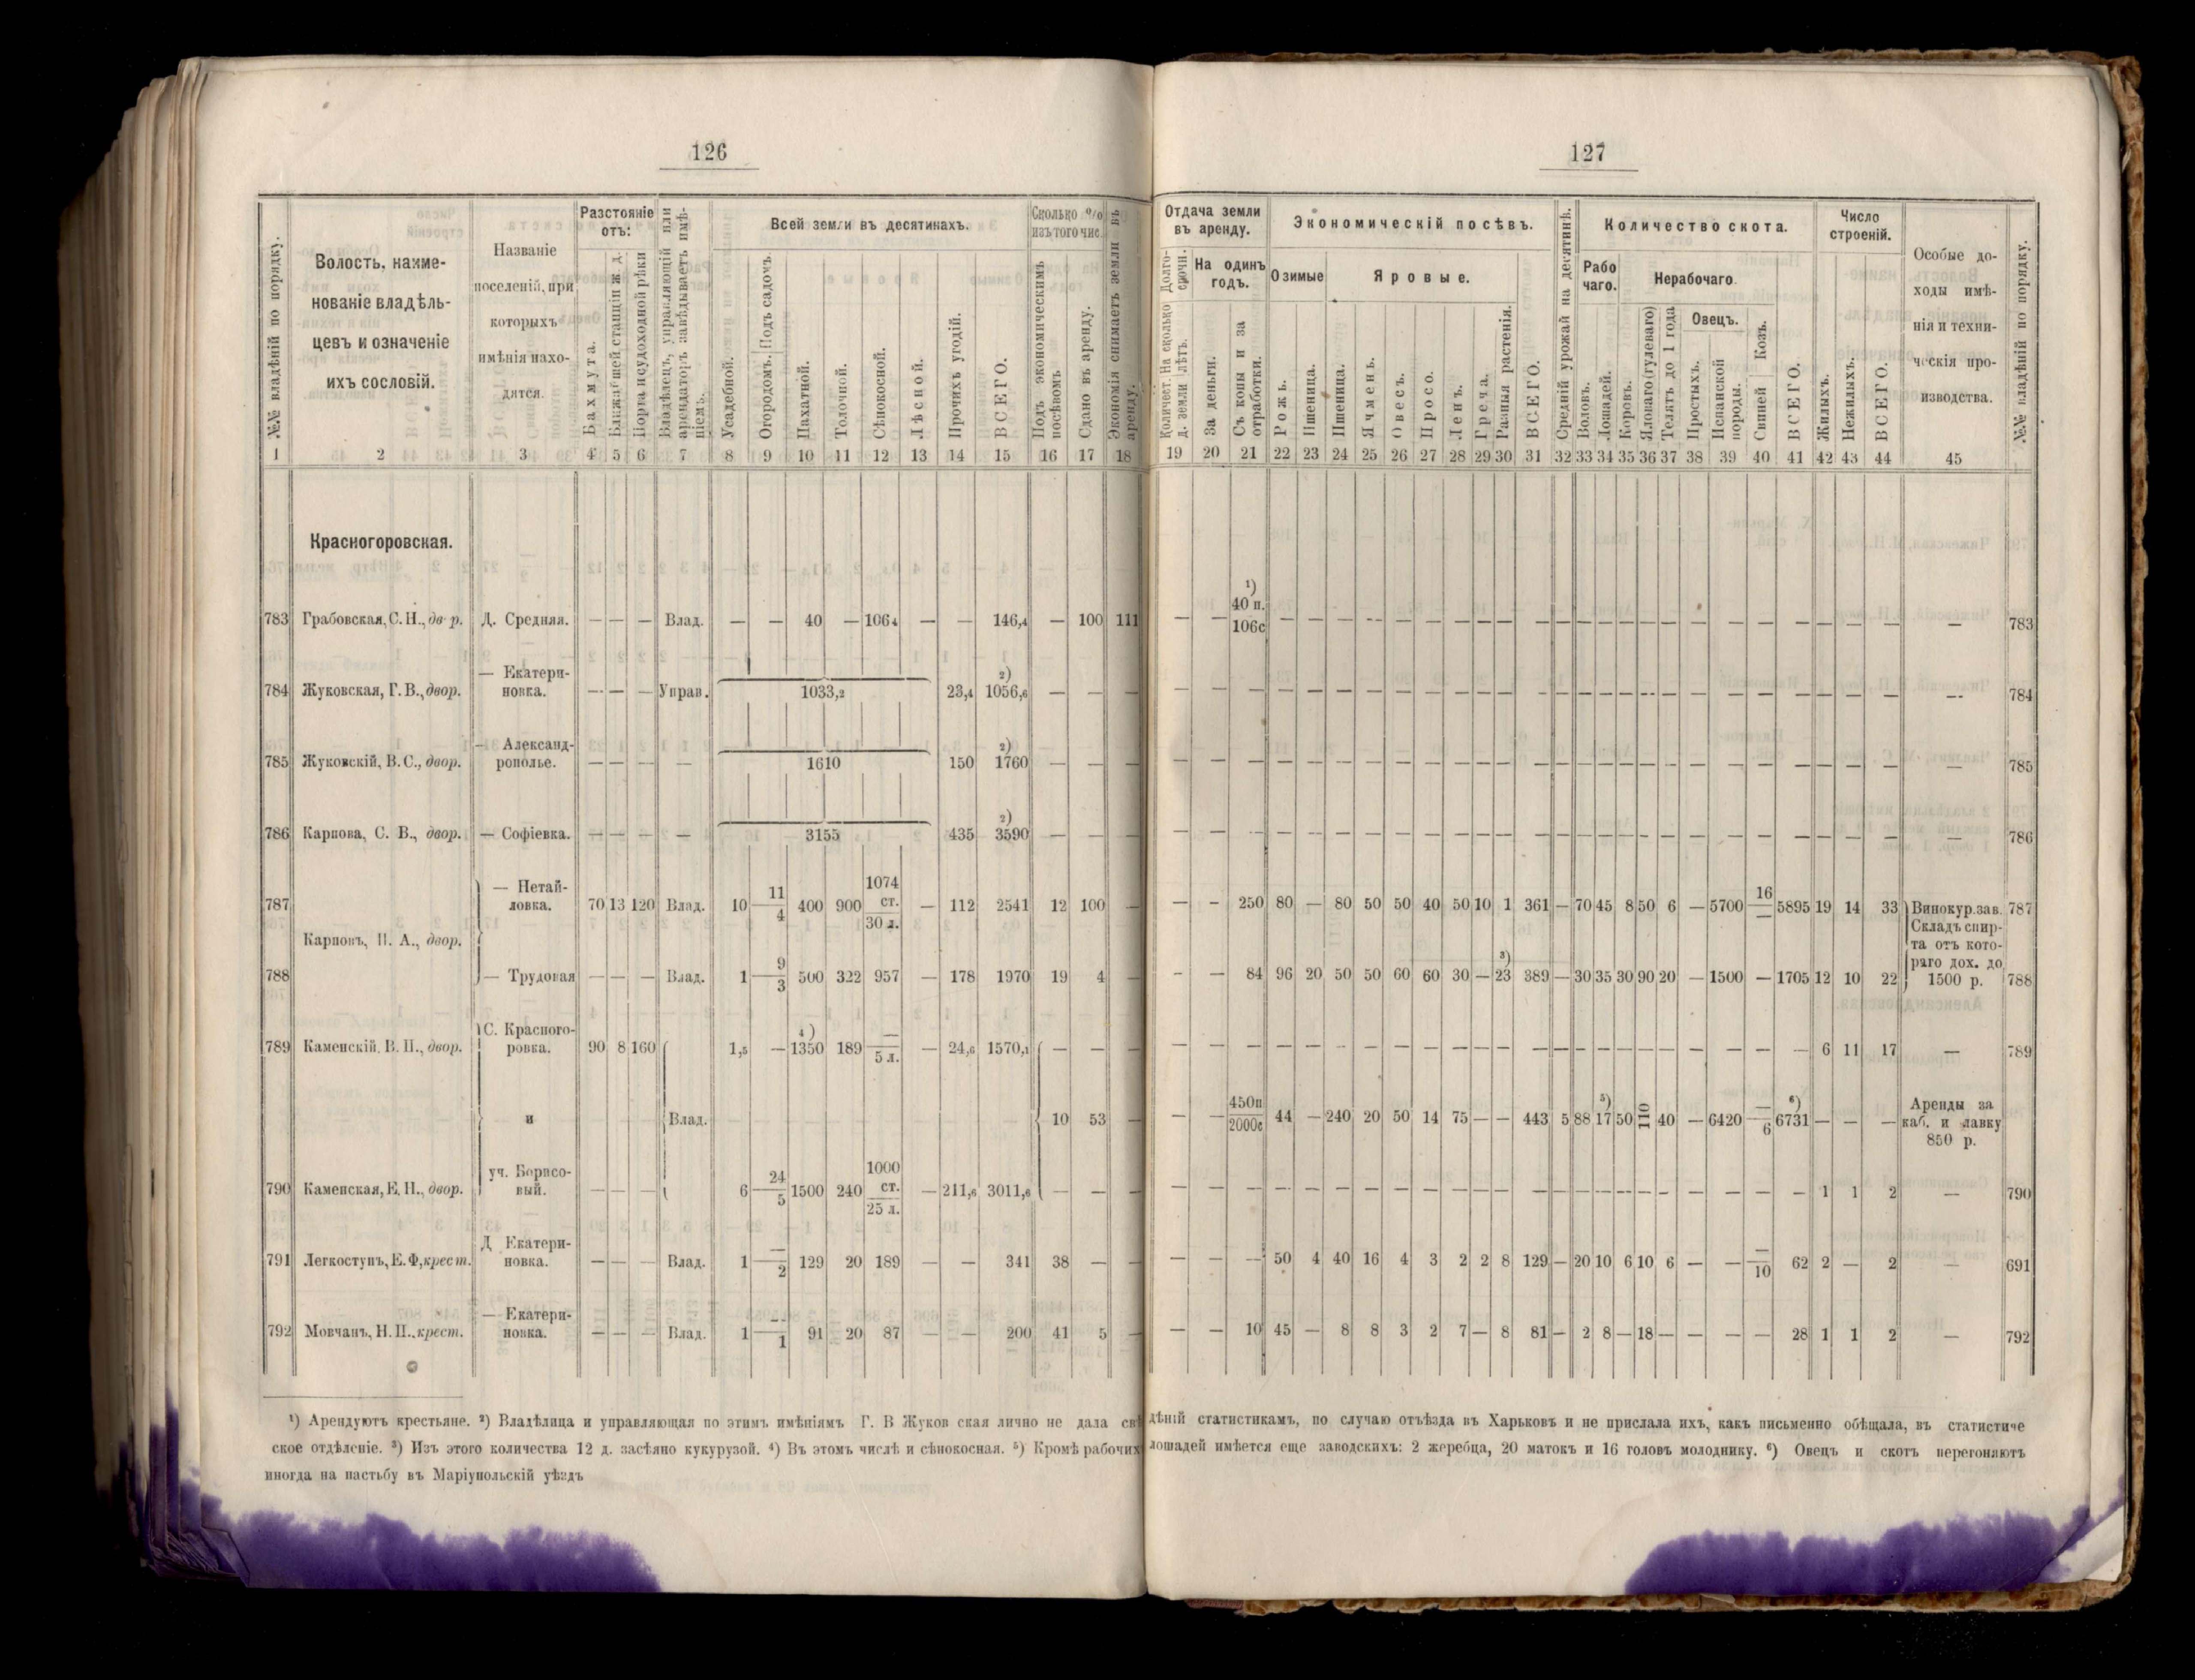 126
№№ владѣній по порядку.
Волость, наиме-
нованіе владѣль-
цевъ и означеніе
ихъ сословій.
Названіе
поселеній, при
которыхъ
имѣнія нахо-
дятся.
Разстояніе
отъ:
Бахмута.
Ближайшей станціи ж. д.
Порта и судоходной рѣки
Владѣлецъ, управляющій или
арендаторъ завѣдываетъ имѣ-
ніемъ.
Всей земли въ десятинахъ.
Усадебной.
Огородомъ. Подъ садомъ.
Пахатной.
Толочной.
Сѣнокосной.
Лѣсной.
Прочихъ угодій.
ВСЕГО.
Сколько %
изъ того чис.
Подъ экономическимъ
посѣвомъ
Сдано въ аренду.
Экономія снимаетъ земли въ
аренду.
1 2 3 4 5 6 7 8 9 10 11 12 13 14 15 16 17 18
Красногоровская.
783 Грабовская, С. Н., двор. Д. Средняя. — — — Влад. — — 40 — 106,4 — — 146,4 — 100 111
784 Жуковская, Г. В., двор. — Екатери-
новка. — — — Управ. 1033,2 23,4 ²) 1056,6 — — —
785 Жуковскій, В. С., двор. — Александ-
рополье. — — — — 1610 150 ²) 1760 — — —
786 Карпова, С. В., двор. — Софіевка. — — — — 3155 435 ²) 3590 — — —
787 — Нетай-
ловка. 70 13 120 Влад. 10 11/4 400 900 1074 ст./30 л. — 112 2541 12 100 —
Карповъ, П. А., двор.
788 — Трудовая — — — Влад. 1 9/3 500 322 957 — 178 1970 19 4 —
789 Каменскій, В. П., двор. С. Красного-
ровка. 90 8 160 1,5 — ⁴) 1350 189 —/5 л. — 24,6 1570,1 — — —
и Влад. — — — — — — — — 10 53 —
790 Каменская, Е. Н., двор. уч. Борисо-
вый. — — — 6 24/5 1500 240 1000 ст./25 л. — 211,6 3011,6 — — —
791 Легкоступъ, Е. Ф, крест. Д Екатери-
новка. — — — Влад. 1 —/2 129 20 189 — — 341 38 — —
792 Мовчанъ, Н. П., крест. — Екатери-
новка. — — — Влад. 1 —/1 91 20 87 — — 200 41 5 —
127
Отдача земли
въ аренду.
Долго-
срочн.
Количест. На сколько
д. земли лѣтъ.
На одинъ
годъ.
За деньги.
Съ копы и за
отработки.
Экономическій посѣвъ.
Озимые
Рожь.
Пшеница.
Яровые.
Пшеница.
Ячмень.
Овесъ.
Просо.
Ленъ.
Греча.
Разныя растенія.
ВСЕГО.
Средній урожай на десятинѣ.
Количество скота.
Рабо
чаго.
Воловъ.
Лошадей.
Нерабочаго.
Коровъ.
Яловаго (гулеваго)
Телятъ до 1 года
Овецъ.
Простыхъ.
Испанской
породы.
Свиней Козъ.
ВСЕГО.
Число
строеній.
Жилыхъ.
Нежилыхъ.
ВСЕГО.
Особые до-
ходы имѣ-
нія и техни-
ческія про-
изводства.
№№ владѣній по порядку.
19 20 21 22 23 24 25 26 27 28 29 30 31 32 33 34 35 36 37 38 39 40 41 42 43 44 45
— — ¹) 40 п. 106с — — — — — — — — — — — — — — — — — — — — — — — — 783
— — — — — — — — — — — — — — — — — — — — — — — — — — — 784
— — — — — — — — — — — — — — — — — — — — — — — — — — — 785
— — — — — — — — — — — — — — — — — — — — — — — — — — — 786
— — 250 80 — 80 50 50 40 50 10 1 361 — 70 45 8 50 6 — 5700 16/— 5895 19 14 33 Винокур. зав. 787
Складъ спир-
та отъ кото-
раго дох. до
— — 84 96 20 50 50 60 60 30 — ³) 23 389 — 30 35 30 90 20 — 1500 — 1705 12 10 22 1500 р. 788
— — — — — — — — — — — — — — — — — — — — — — — 6 11 17 — 789
— — 450п/2000с 44 — 240 20 50 14 75 — — 443 5 88 ⁵) 17 50 110 40 — 6420 —/6 ⁶) 6731 — — — Аренды за
каб. и лавку
850 р.
— — — — — — — — — — — — — — — — — — — — — — — 1 1 2 — 790
— — — 50 4 40 16 4 3 2 2 8 129 — 20 10 6 10 6 — — —/10 62 2 — 2 — 691
— — 10 45 — 8 8 3 2 7 — 8 81 — 2 8 — 18 — — — — 28 1 1 2 — 792
¹) Арендуютъ крестьяне. ²) Владѣлица и управляющая по этимъ имѣніямъ Г. В Жуков ская лично не дала свѣдѣній статистикамъ, по случаю отъѣзда въ Харьковъ и не прислала ихъ, какъ письменно обѣщала, въ статистиче
ское отдѣленіе. ³) Изъ этого количества 12 д. засѣяно кукурузой. ⁴) Въ этомъ числѣ и сѣнокосная. ⁵) Кромѣ рабочихъ лошадей имѣется еще заводскихъ: 2 жеребца, 20 матокъ и 16 головъ молоднику. ⁶) Овецъ и скотъ перегоняютъ
иногда на пастьбу въ Маріупольскій уѣздъ